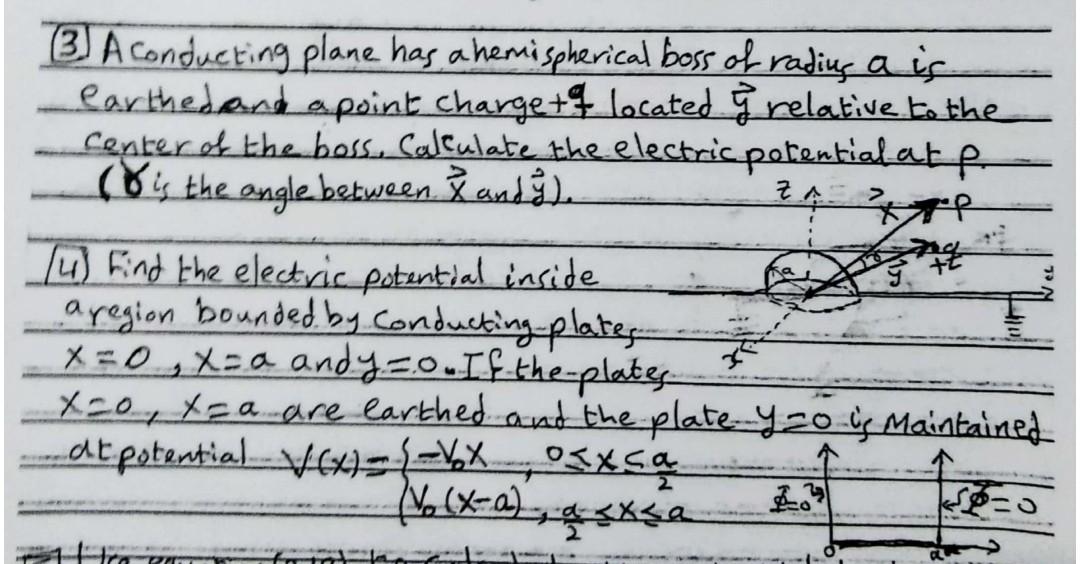 [3] A conducting plane has a hemispherical boss of radius a is
earthed and a point charge +q located y⃗ relative to the
center of the boss. Calculate the electric potential at P.
(γ is the angle between x⃗ and y⃗).
z x⃗ P
a γ y⃗ +q
x
[4] Find the electric potential inside
a region bounded by conducting plates
x=0, x=a and y=0. If the plates
x=0, x=a are earthed and the plate y=0 is Maintained
at potential V(x)= {-V₀x , 0≤x≤a/2
{V₀(x-a) , a/2 ≤x≤a
Φ=0 Φ=0
0 a